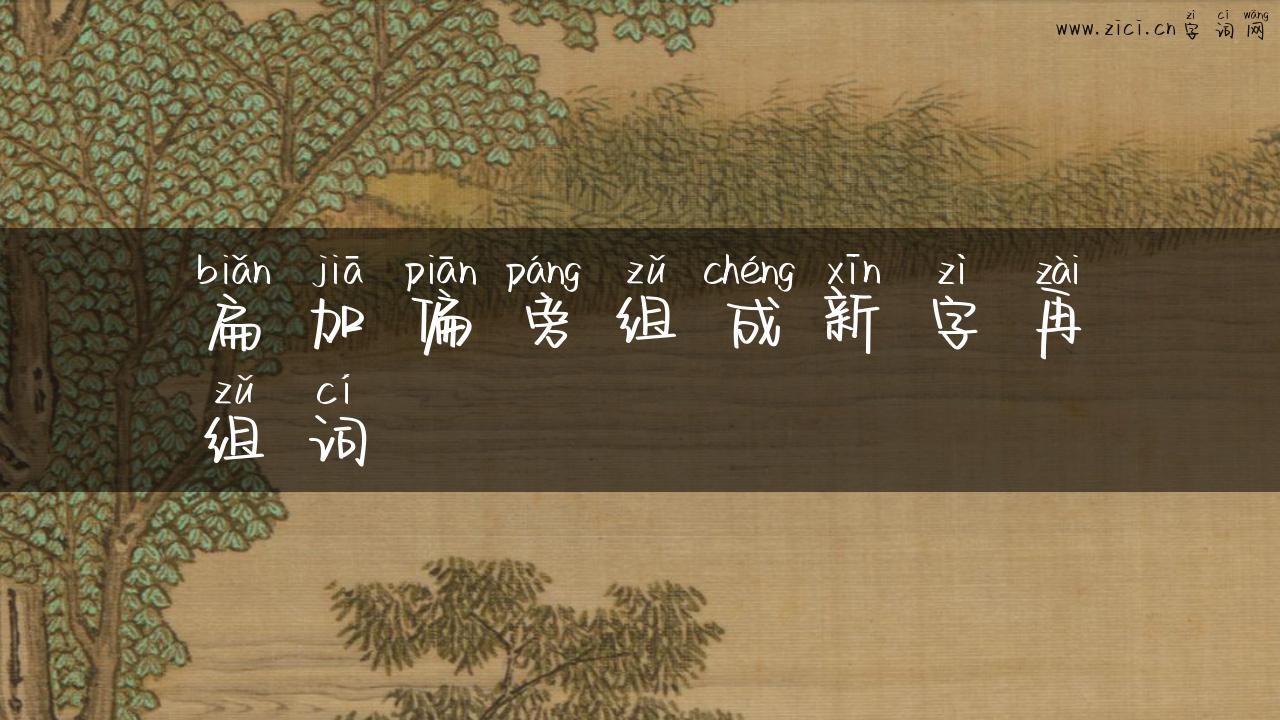 zì cí wǎng
www.zici.cn字词网
biǎn jiā piān páng zǔ chéng xīn zì zài
扁加偏旁组成新字再
zǔ cí
组词